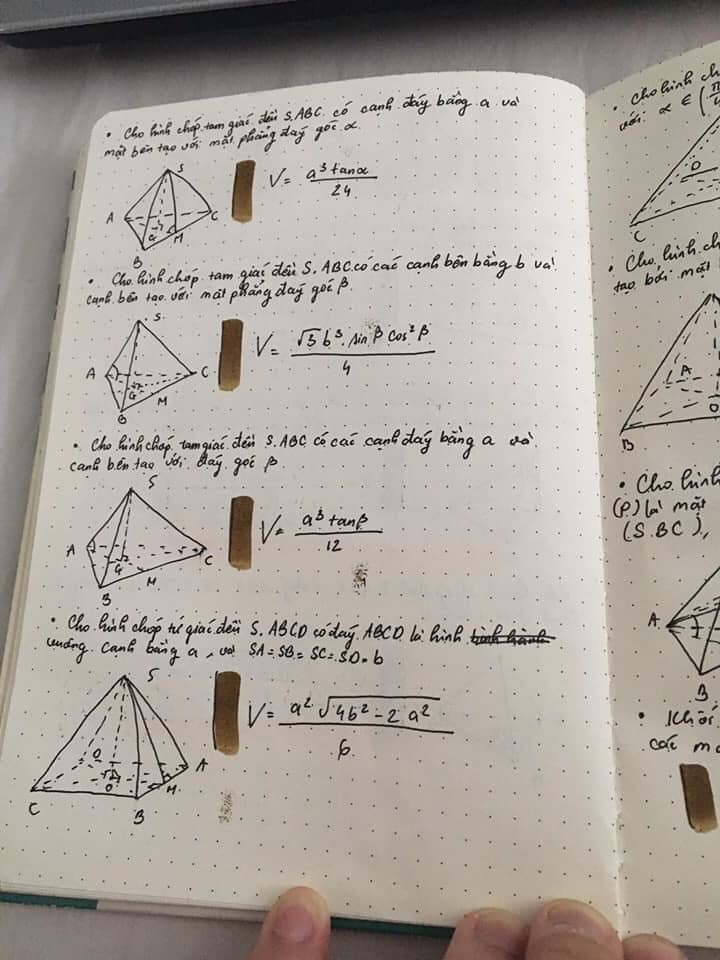 • Cho hình chóp tam giác đều S.ABC có cạnh đáy bằng a và
mặt bên tạo với mặt phẳng đáy góc α.
S
A
B
C
G
M
V = a³ tanα / 24
• Cho hình chóp tam giác đều S.ABC có các cạnh bên bằng b và
cạnh bên tạo với mặt phẳng đáy góc β.
S
A
B
C
G
M
V = √3 b³. sin β cos² β / 4
• Cho hình chóp tam giác đều S.ABC có các cạnh đáy bằng a và
cạnh bên tạo với đáy góc β
S
A
B
C
G
M
V = a³ tanβ / 12
• Cho hình chóp tứ giác đều S.ABCD có đáy ABCD là hình bình hành
vuông cạnh bằng a, và SA = SB = SC = SD = b
S
D
A
C
O
M
B
V = a² √4b² - 2 a² / 6
• Cho hình ch
với α ∈ (π
O
C
• Cho hình ch
tạo bởi mặt
A
B
O
• Cho hình
(P) là mặt
(S.BC),
A
B
• Khối
các m